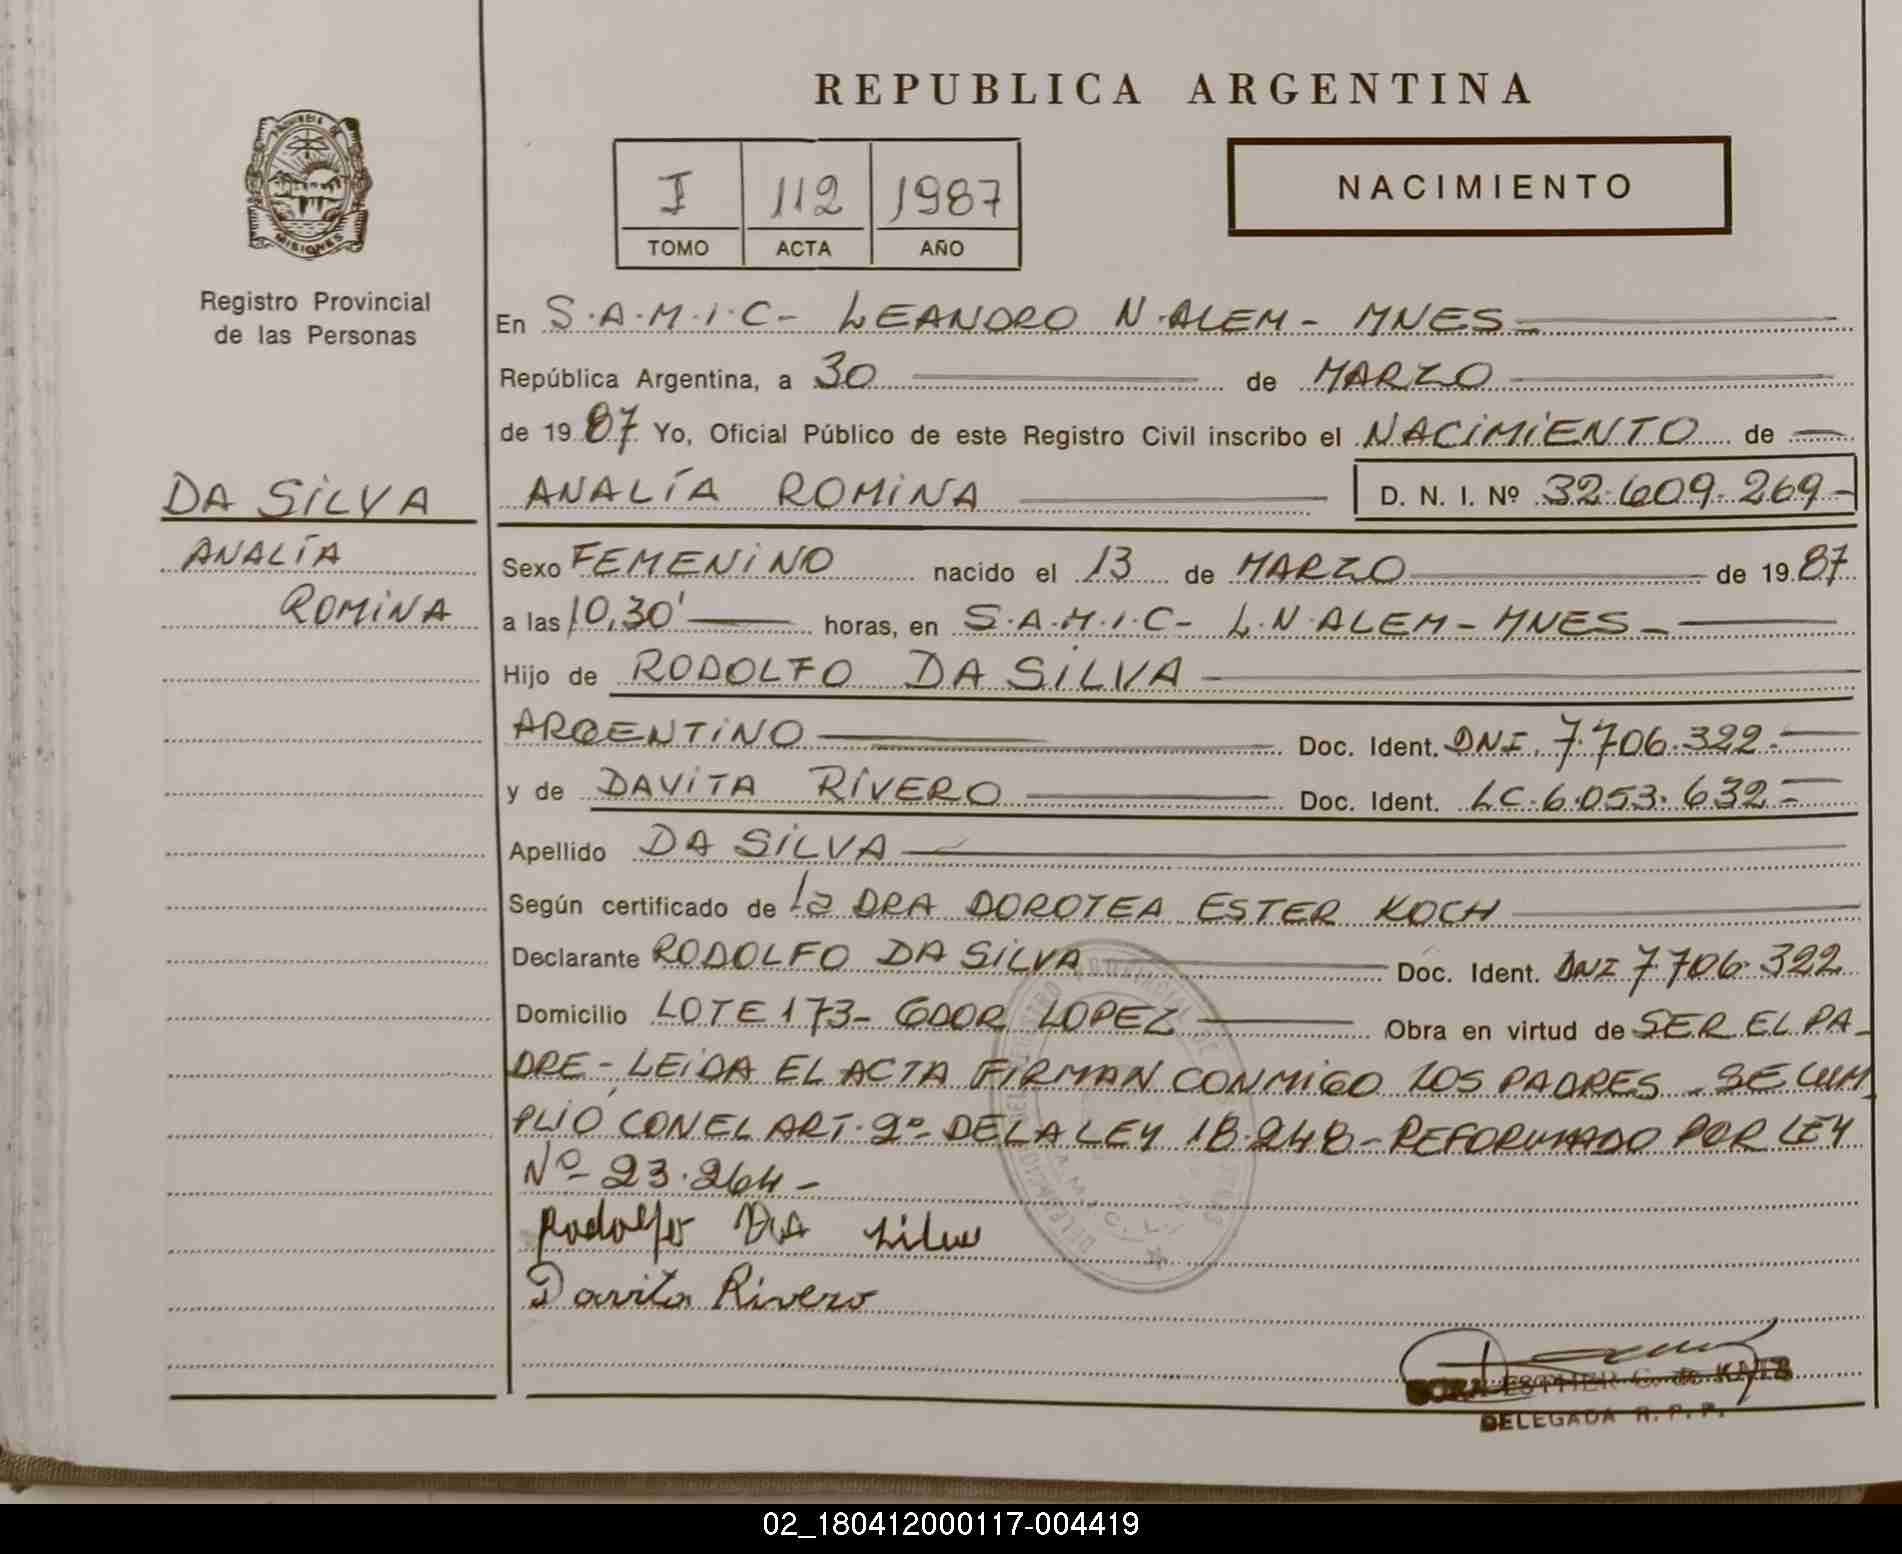 REPUBLICA ARGENTINA
PROVINCIA DE
MISIONES
Registro Provincial
de las Personas
I 112 1987
TOMO ACTA AÑO
NACIMIENTO
En S.A.M.I.C- LEANDRO N.ALEM- MNES-
República Argentina, a 30 de MARZO
de 19 87 Yo, Oficial Público de este Registro Civil inscribo el NACIMIENTO de
DA SILVA
ANALÍA
ROMINA
ANALÍA ROMINA D. N. I. Nº 32.609.269-
Sexo FEMENINO nacido el 13 de MARZO de 19 87
a las 10,30' horas, en S.A.M.I.C- L.N.ALEM-MNES-
Hijo de RODOLFO DA SILVA
ARGENTINO Doc. Ident. DNI. 7.706.322-
y de DAVITA RIVERO Doc. Ident. LC.6.053.632-
Apellido DA SILVA
Según certificado de la DRA DOROTEA ESTER KOCH
Declarante RODOLFO DA SILVA Doc. Ident. DNI 7.706.322
Domicilio LOTE 173- GDOR LOPEZ Obra en virtud de SER EL PA-
DRE- LEIDA EL ACTA FIRMAN CONMIGO LOS PADRES - SE CUM-
PLIÓ CON EL ART. 2º- DE LA LEY 18.248- REFORMADO POR LEY
Nº- 23.264-
Rodolfo DA Silva
Davita Rivero
ESTHER G. de KATZ
DELEGADA R. P. P.
02_180412000117-004419